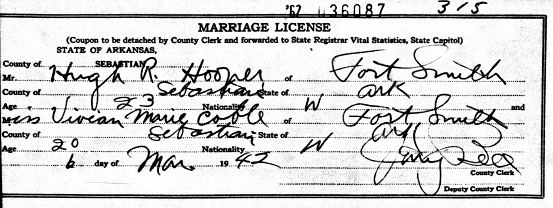 '67 036087 315
MARRIAGE LICENSE
(Coupon to be detached by County Clerk and forwarded to State Registrar Vital Statistics, State Capitol)
STATE OF ARKANSAS,
County of SEBASTIAN
Mr. Hugh R. Hooper of Fort Smith
County of Sebastian State of Ark
Age 23 Nationality W and
Miss Vivian Marie Coble of Fort Smith
County of Sebastian State of Ark
Age 20 Nationality W
6 day of Mar 1942
County Clerk
Deputy County Clerk